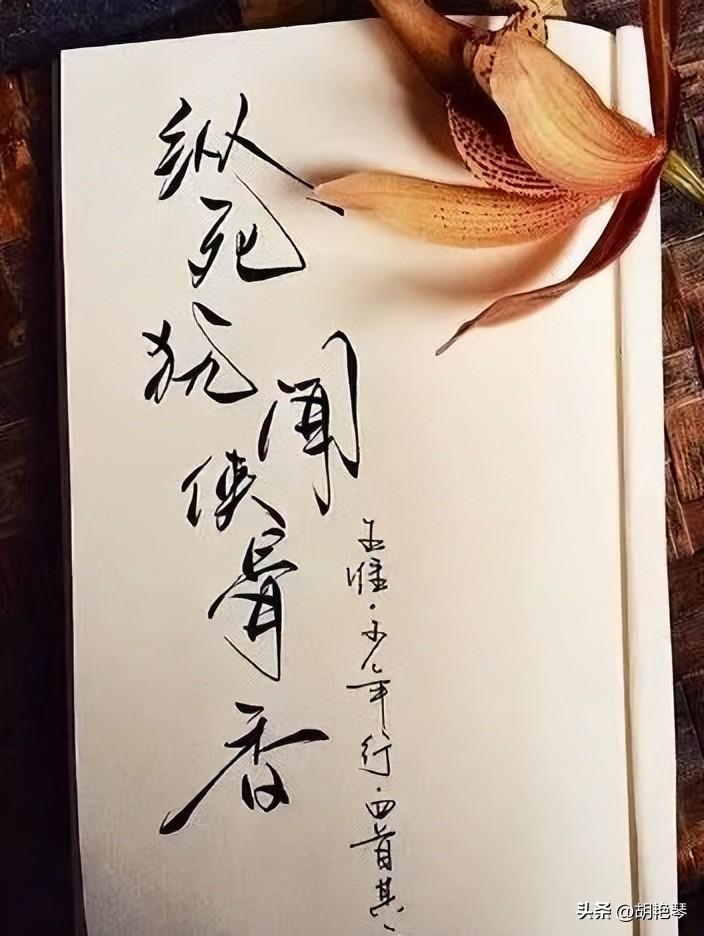 纵死犹闻侠骨香
王维·少年行·四首其
头条 @胡艳琴